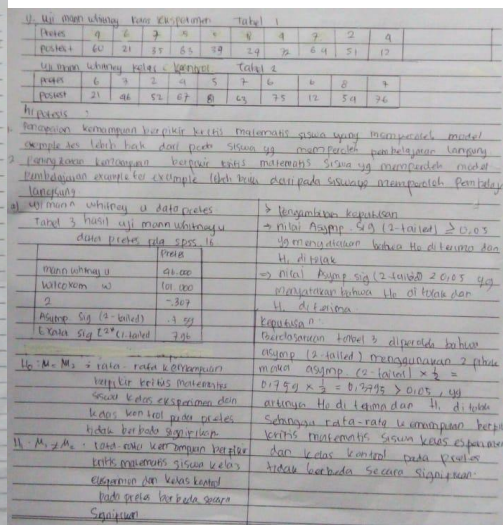 1. Uji mann whitney kelas eksperimen Tabel 1
Pretes
Postest 60 21 35 65 59 29 32 64 51 12
Uji mann whitney kelas kontrol Tabel 2
Pretes 6 7 2 4 5 7 6 6 8 7
Postest 21 46 52 67 81 63 75 12 59 76
Hipotesis :
1. Pencapaian kemampuan berpikir kritis matematis siswa yang memperoleh model
example lebih baik dari pada siswa yg memperoleh pembelajaran langsung
2. peningkatan kemampuan berpikir kritis matematis siswa yg memperoleh model
pembelajaran example for example lebih baik daripada siswa yg memperoleh pembelaj
langsung
a) uji mann whitney u data pretes
Tabel 3 hasil uji mann whitney u
data pretes pda spss 16
Pretes
mann whitney u 46.000
wilcoxon w 101.000
2 -.307
Asymp. Sig (2-tailed) .759
Exata sig [2*(1.tailed 796
H0 : M1 = M2 : rata-rata kemampuan
berpikir kritis matematis
siswa kelas eksperimen dan
kelas kontrol pada pretes
tidak berbeda signifikan
H1 : M1 ≠ M2 : rata-rata kemampuan berpikir
kritis matematis siswa kelas
eksperimen dan kelas kontrol
pada pretes berbeda secara
signifikan
> Pengambilan keputusan
→ nilai Asymp. Sig (2-tailed) ≥ 0,05
yg menyatakan bahwa H0 di terima dan
H1 ditolak
→ nilai Asymp sig (2-tailed) 0,05 yg
menyatakan bahwa H0 di tolak dan
H1 di terima.
Keputusan :
Berdasarkan tabel 3 diperoleh bahwa
asymp (2-tailed) menggunakan 2 pihak
maka asymp. (2-tailed) × 1/2 =
0,759 × 1/2 = 0,3795 > 0,05, yg
artinya H0 di terima dan H1 di tolak
sehingga rata-rata kemampuan berpi
kritis matematis siswa kelas eksperimen
dan kelas kontrol pada pretes
tidak berbeda secara signifikan